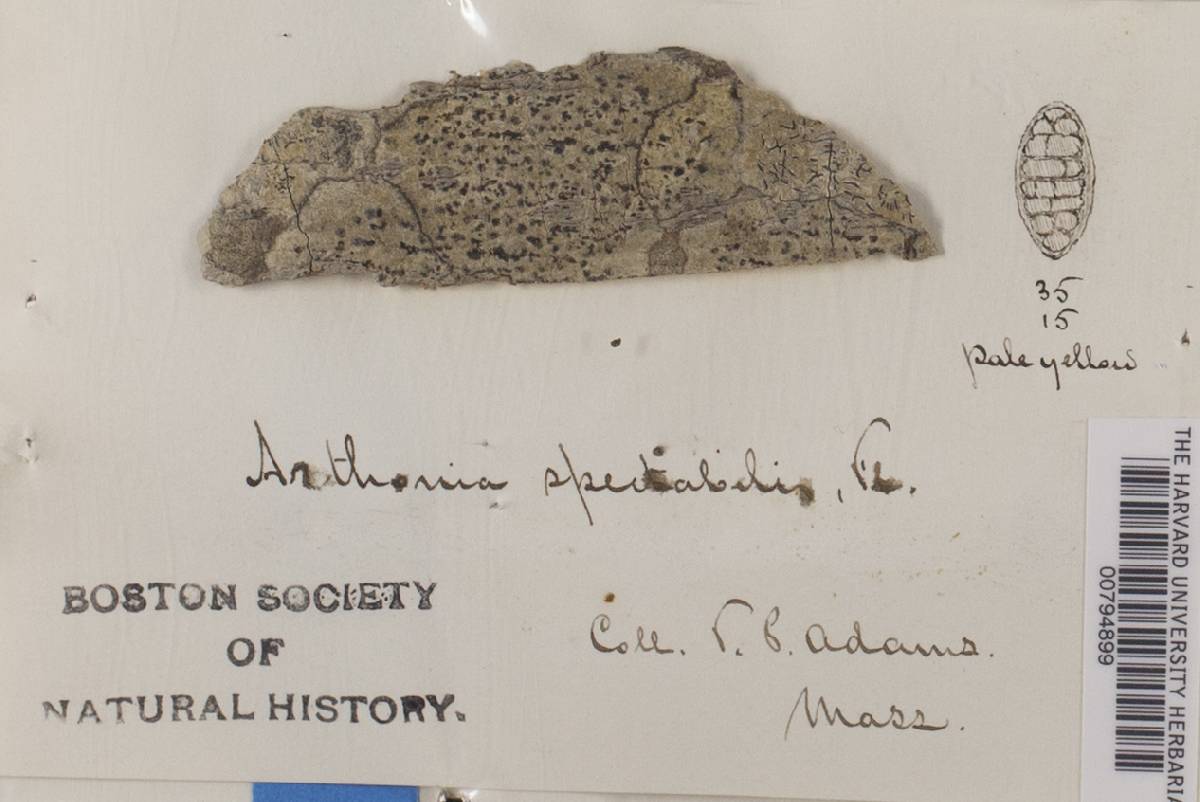 35
15
pale yellow
Arthonia spectabilis, Fl.
BOSTON SOCIETY
OF
NATURAL HISTORY.
Coll. F. C. Adams.
Mass.
THE HARVARD UNIVERSITY HERBARIA
00794899